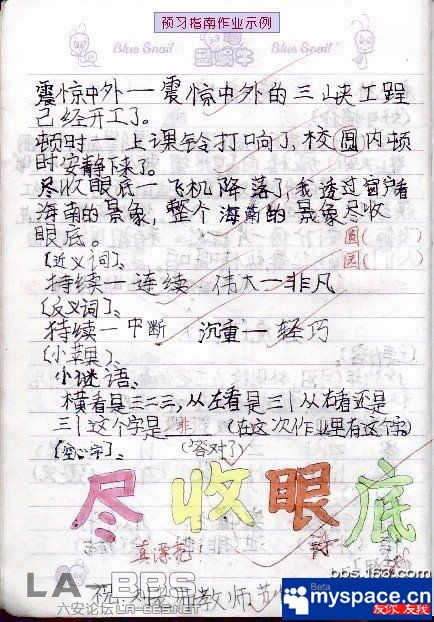 预习指南作业示例
Blue Snail 蓝蜗牛 Blue Snail
震惊中外一震惊中外的三峡工程
已经开工了。
顿时一上课铃打响了,校圆内顿
时安静下来了。
尽收眼底一飞机降落了,我透过窗户看
海南的景象,整个海南的景象尽收
眼底。
圆( )
园( )
[近义词]、
持续一连续 伟大一非凡
[反义词]、
持续一中断 沉重一轻巧
(小苹果)、
小谜语、
横看是三二三,从左看是三丨从右看还是
三丨这个字是 非 (在这次作业里有这个字)
(答对了)
[空心字]、
尽收眼底
真漂亮!
LA-BBS
六安论坛 LA-BBS.NET
祝 教师节
bbs.163.com
Beta
myspace.cn
友你 友我